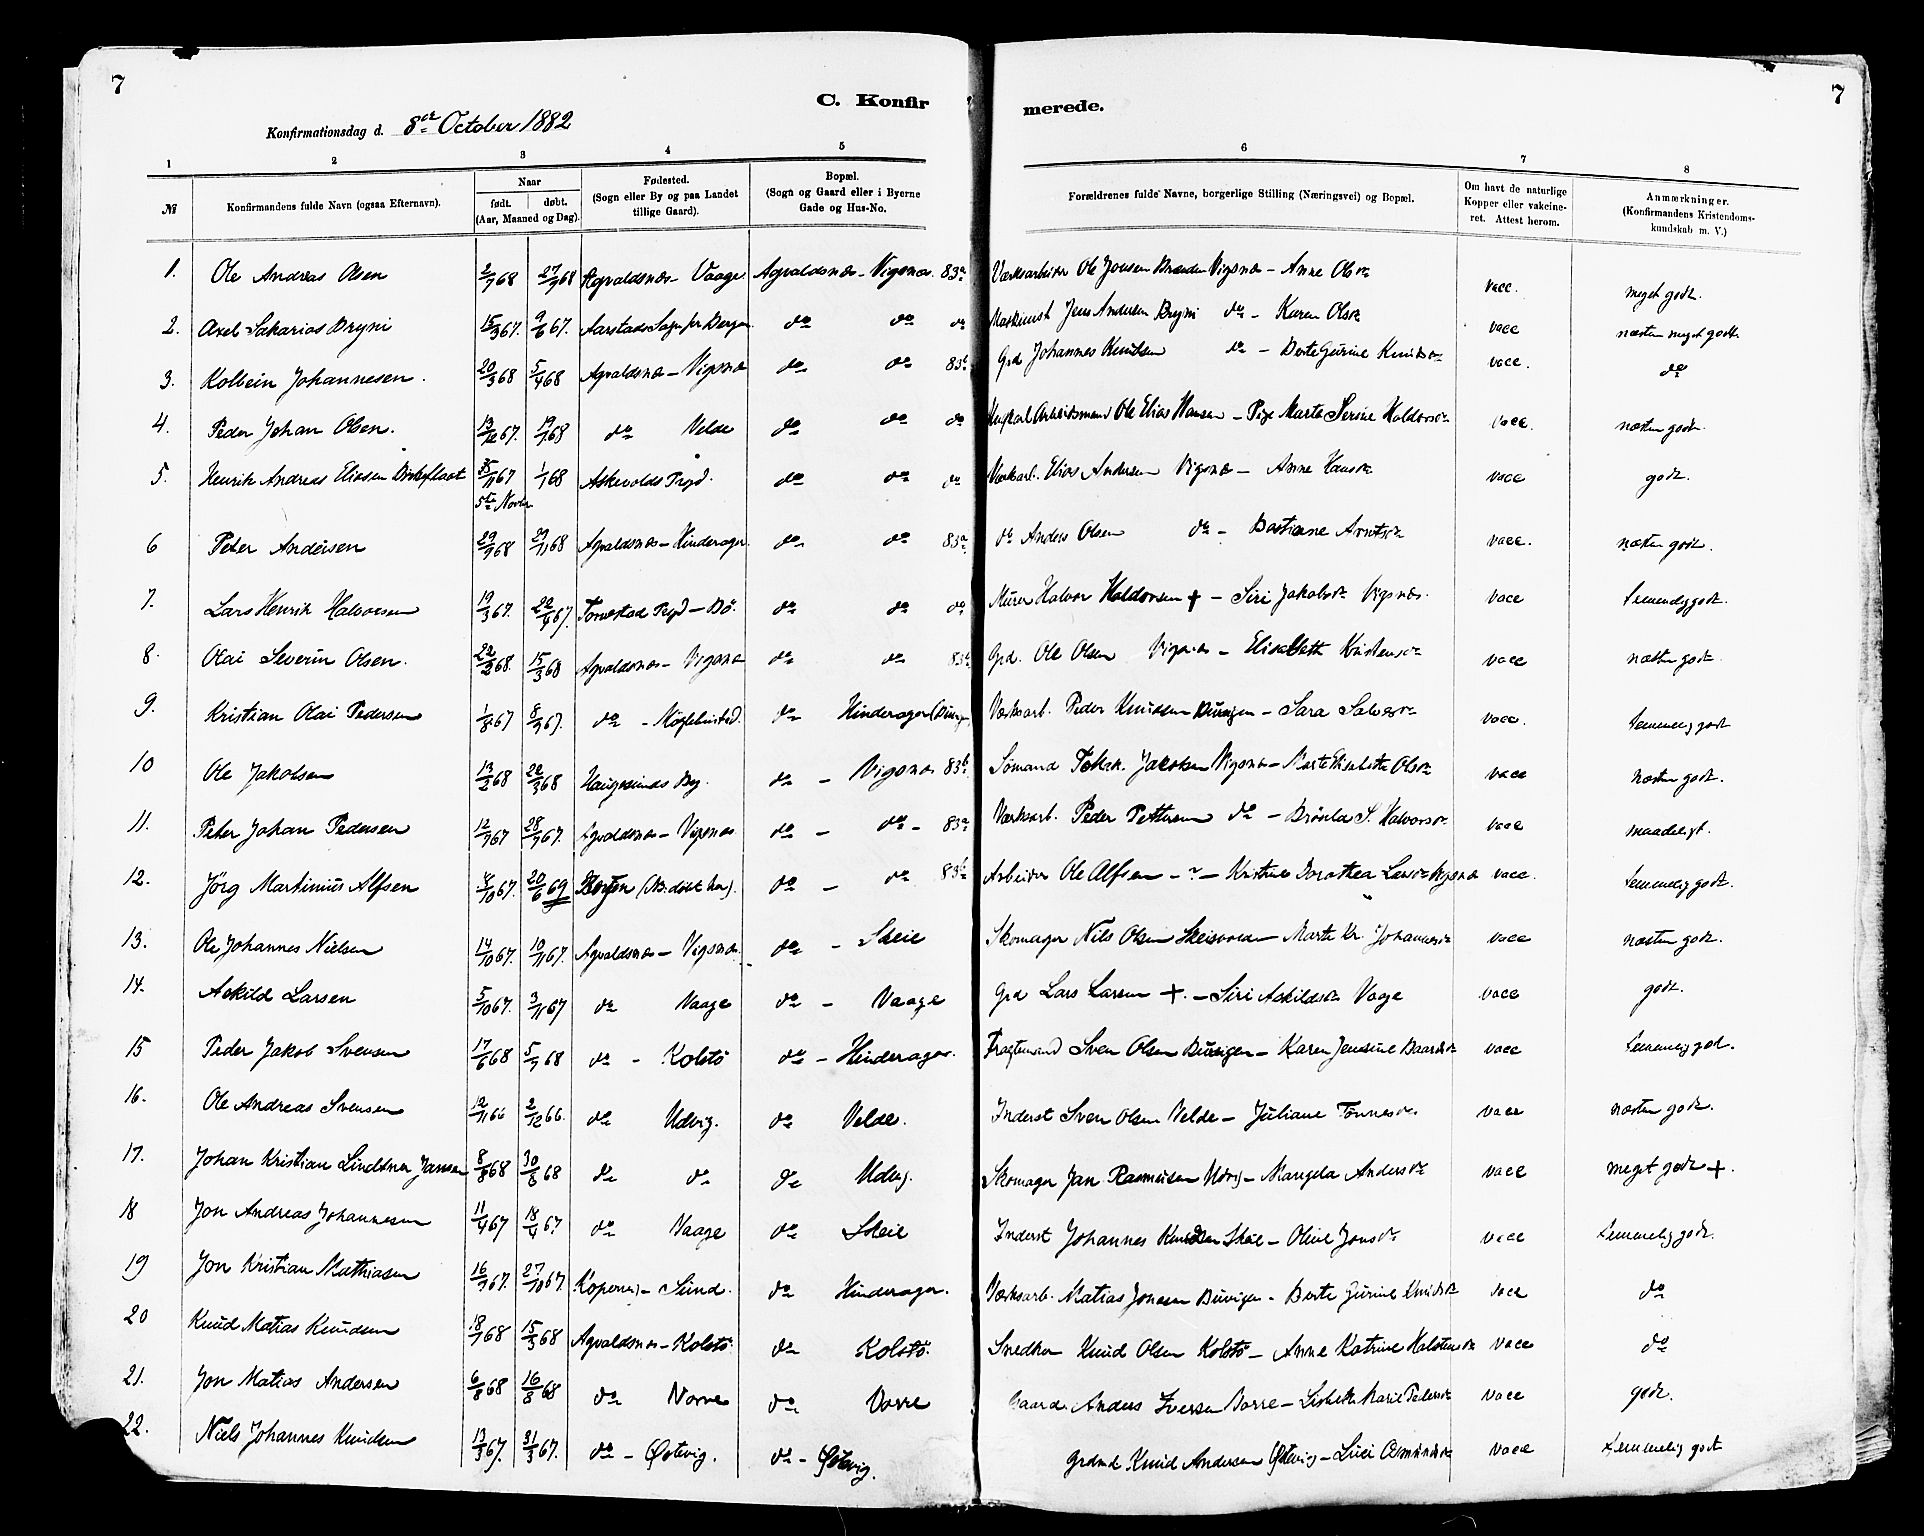 7
C. Konfir
merede.
7
Konfirmationsdag d. 8de October 1882
1 2 3 4 5 6 7 8
№ Konfirmandens fulde Navn (ogsaa Efternavn). Naar født. døbt. (Aar, Maaned og Dag). Fødested. (Sogn eller By og paa Landet tillige Gaard). Bopæl. (Sogn og Gaard eller i Byerne Gade og Hus-No. Forældrenes fulde Navne, borgerlige Stilling (Næringsvei) og Bopæl. Om havt de naturlige Kopper eller vakcineret. Attest herom. Anmærkninger. (Konfirmandens Kristendomskundskab m. V.)
1. Ole Andreas Olsen 2/7 68 27/9 68 Agvaldsnæs - Vaage Agvaldsnæs - Vigsnæs 83a Værksarbeider Ole Jonsen Vigsnæs - Anne Olsdr vacc. meget godt.
2. Axel Sakarias Bryni 15/3 67. 9/6 67. Aarstads Sogn pr Bergen do do do Maskinist Jens Andersen Bryni do - Karen Olsdr vacc næsten meget godt
3. Kolbein Johannesen. 20/3 68 5/4 68 Agvaldsnæs - Vigsnæs do do 83 Grd Johannes Knutsen do - Berte Gurine Knudsdr vacc. do
4. Peder Johan Olsen. 13/12 67. 19/1 68 do Velde do do do Ungkarl Arbeidsmand Ole Elias Hansen - Pige Marta Serine Haldorsdr vacc. næsten godt.
5. Henrik Andreas Eliasen 35/11 67 1/1 68 Askevolds Prgd. do do do Værksarb. Elias Andersen Vigsnæs - Anne Hansdr vacc godt.
5te Novbr
6 Peter Andersen 29/9 68 29/11 68 Agvaldsnæs - Hinderager do do 83a do Anders Olsen do - Bastiane Arntsdr vacc. næsten godt.
7. Lars Henrik Halvorsen 19/3 67. 22/4 67. Tornestad Prgd - Bö. do do do Murer Halvor Haldorsen + - Siri Jakobsdr Vigsnæs. vacc temmelig godt.
8. Olai Severin Olsen. 22/2 68. 15/3 68 Agvaldsnæs - Vigsnæs do do 83b Grd. Ole Olsen Vigsnæs - Elisabeth Kristensdr vacc næsten godt.
9. Kristian Olai Pedersen 1/8 67 8/9 67. do - do Hinderager Værksarb. Peder Knudsen Buvigen - Sara vacc. temmelig godt
10 Ole Jakobsen 13/2 68 22/3 68 Haugesunds By. do - Vigsnæs 83b Sömand Jakobsen Vigsnæs - Marte Elisabeth Olsdr vacc næsten godt.
11. Peter Johan Pedersen 12/7 67 28/7 67. Agvaldsnæs - Vigsnæs do - do - 83a Værksarb. Peder Pettersen do - Brönla S. Halvorsdr vacc maadeligt.
12. Jörg Martinius Alfsen 4/10 67. 20/6 69 Bergen (Nb. döbt her). do - do 83b Arbeider Ole Alfsen - " - Kristine Dorothea Larsdr Vigsnæs vacc. temmelig godt.
13. Ole Johannes Nielsen 14/10 67. 10/11 67. Agvaldsnæs - Vigsnæs. do - Skeie Skomager Nils Olsen Skeisvolden - Marta Kr. Johannesdr vacc næsten godt.
14. Askild Larsen 5/10 67. 3/11 67 do Vaage do - Vaage Grd Lars Larsen +. - Siri Askildsdr Vaage vacc godt.
15 Peder Jakob Svensen 17/6 68 5/7 68 do - Kolstö do - Hinderager. Fragtemand Sven Olsen Buvigen - Karen Jensine Baardsdr vacc temmelig god.
16. Ole Andreas Svensen 12/11 66 2/12 66. do Udvig. do Velde. Inderst Sven Olsen Velde - Juliane Tönnesdr. vacc næsten godt.
17. Johan Kristian Lindtner Jansen 8/8 68 30/8 68 do do do Udvig. Skomager Jan Rasmusen Udvig - Mangela Andersdr vacc meget godt +.
18 Jon Andreas Johannesen 11/4 67 18/4 67. do Vaage do Skeie Inderst Johannes Knudsen Skeie - Oline Jonsdr vacc temmelig godt.
19 Jon Kristian Mathiasen 16/9 67. 27/10 67. Kopervig - Sund. do Hinderager. Værksarb. Matias Jonsen Buvigen - Berte Gurine Knudsdr vacc do
20 Knud Matias Knudsen 18/1 68 15/3 68 Agvaldsnæs - Kolstö do Kolstö. Snedker Knud Olsen Kolstö - Anne Katrine Halstensdr vacc do
21. Jon Matias Andersen 6/8 68 16/8 68 do Norve do Vorre Gaard. Anders Iversen Vorre - Lisbeth Marie Pedersdr vacc godt.
22. Niels Johannes Knudsen 13/3 67. 31/3 67. do - Østvig. do - Østvig. Grdmd Knud Andersen Østvig - Lisei Osmundsdr vacc temmelig godt